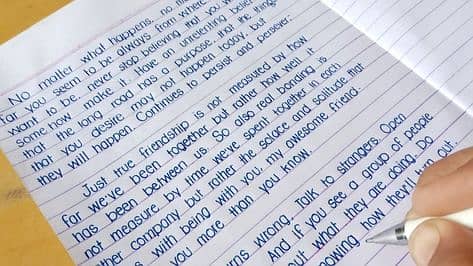 No matter what happens, no
far you seem to be always from where
want to be.. never stop believing that you
some how make it. Have an unrelenting belief
that the long road has a purpose that the things
that you desire may not happen today, but
they will happen. Continues to persist and persever.
Just true friendship is not measured by how
far we've been together but rather how well it
has been between us. So also real bonding is
not measure by time we've spent together in each
other company but rather the solace and solitude that
s with being with you. my awesome friend.
you more than you know.
rns wrong. Talk to strangers. Open
And if you see a group of people
out what they are doing. Do
nowing how they'll turn out.